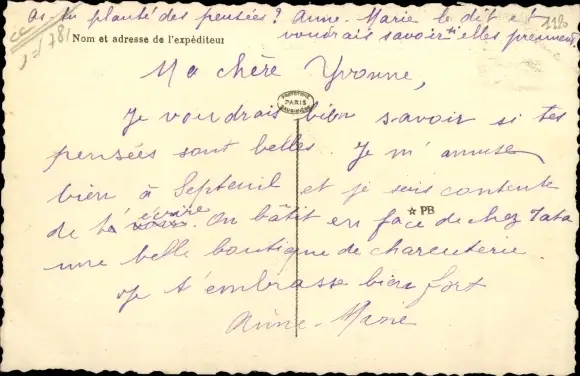 As-tu planté des pensées? Anne-Marie le dit et
voudrais savoir si elles prennent.
Nom et adresse de l'expéditeur
1120
Ma chère Yvonne,
PARIS
Je voudrais bien savoir si tes
pensées sont belles. Je m'amuse
bien à Septeuil et je suis contente
de t'écrire. On bâtit en face de chez Tata
☆ PB
une belle boutique de charcuterie.
Je t'embrasse bien fort
Anne-Marie